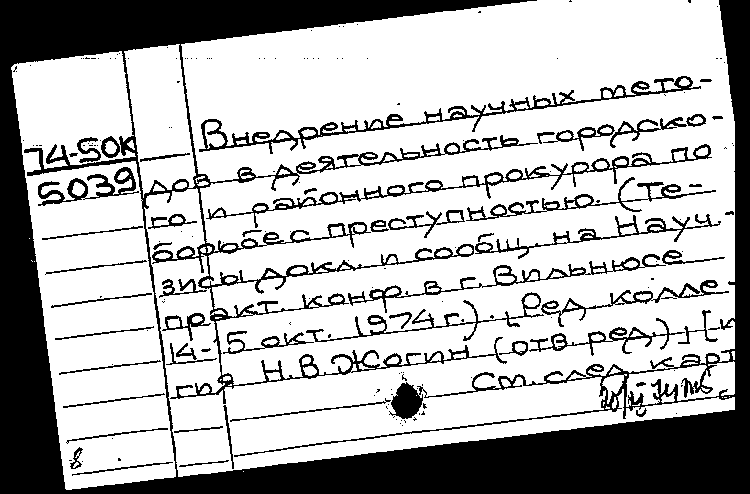 Внедрение научных мето-
74-50К
5039
дов в деятельность городско-
го и районного прокурора по
борьбе с преступностью. (Те-
зисы докл. и сообщ. на Науч.-
практ. конф. в г. Вильнюсе
14-15 окт. 1974 г.). [Ред колле-
гия Н.В. Жогин (отв ред.)] [и
См. след карт
8